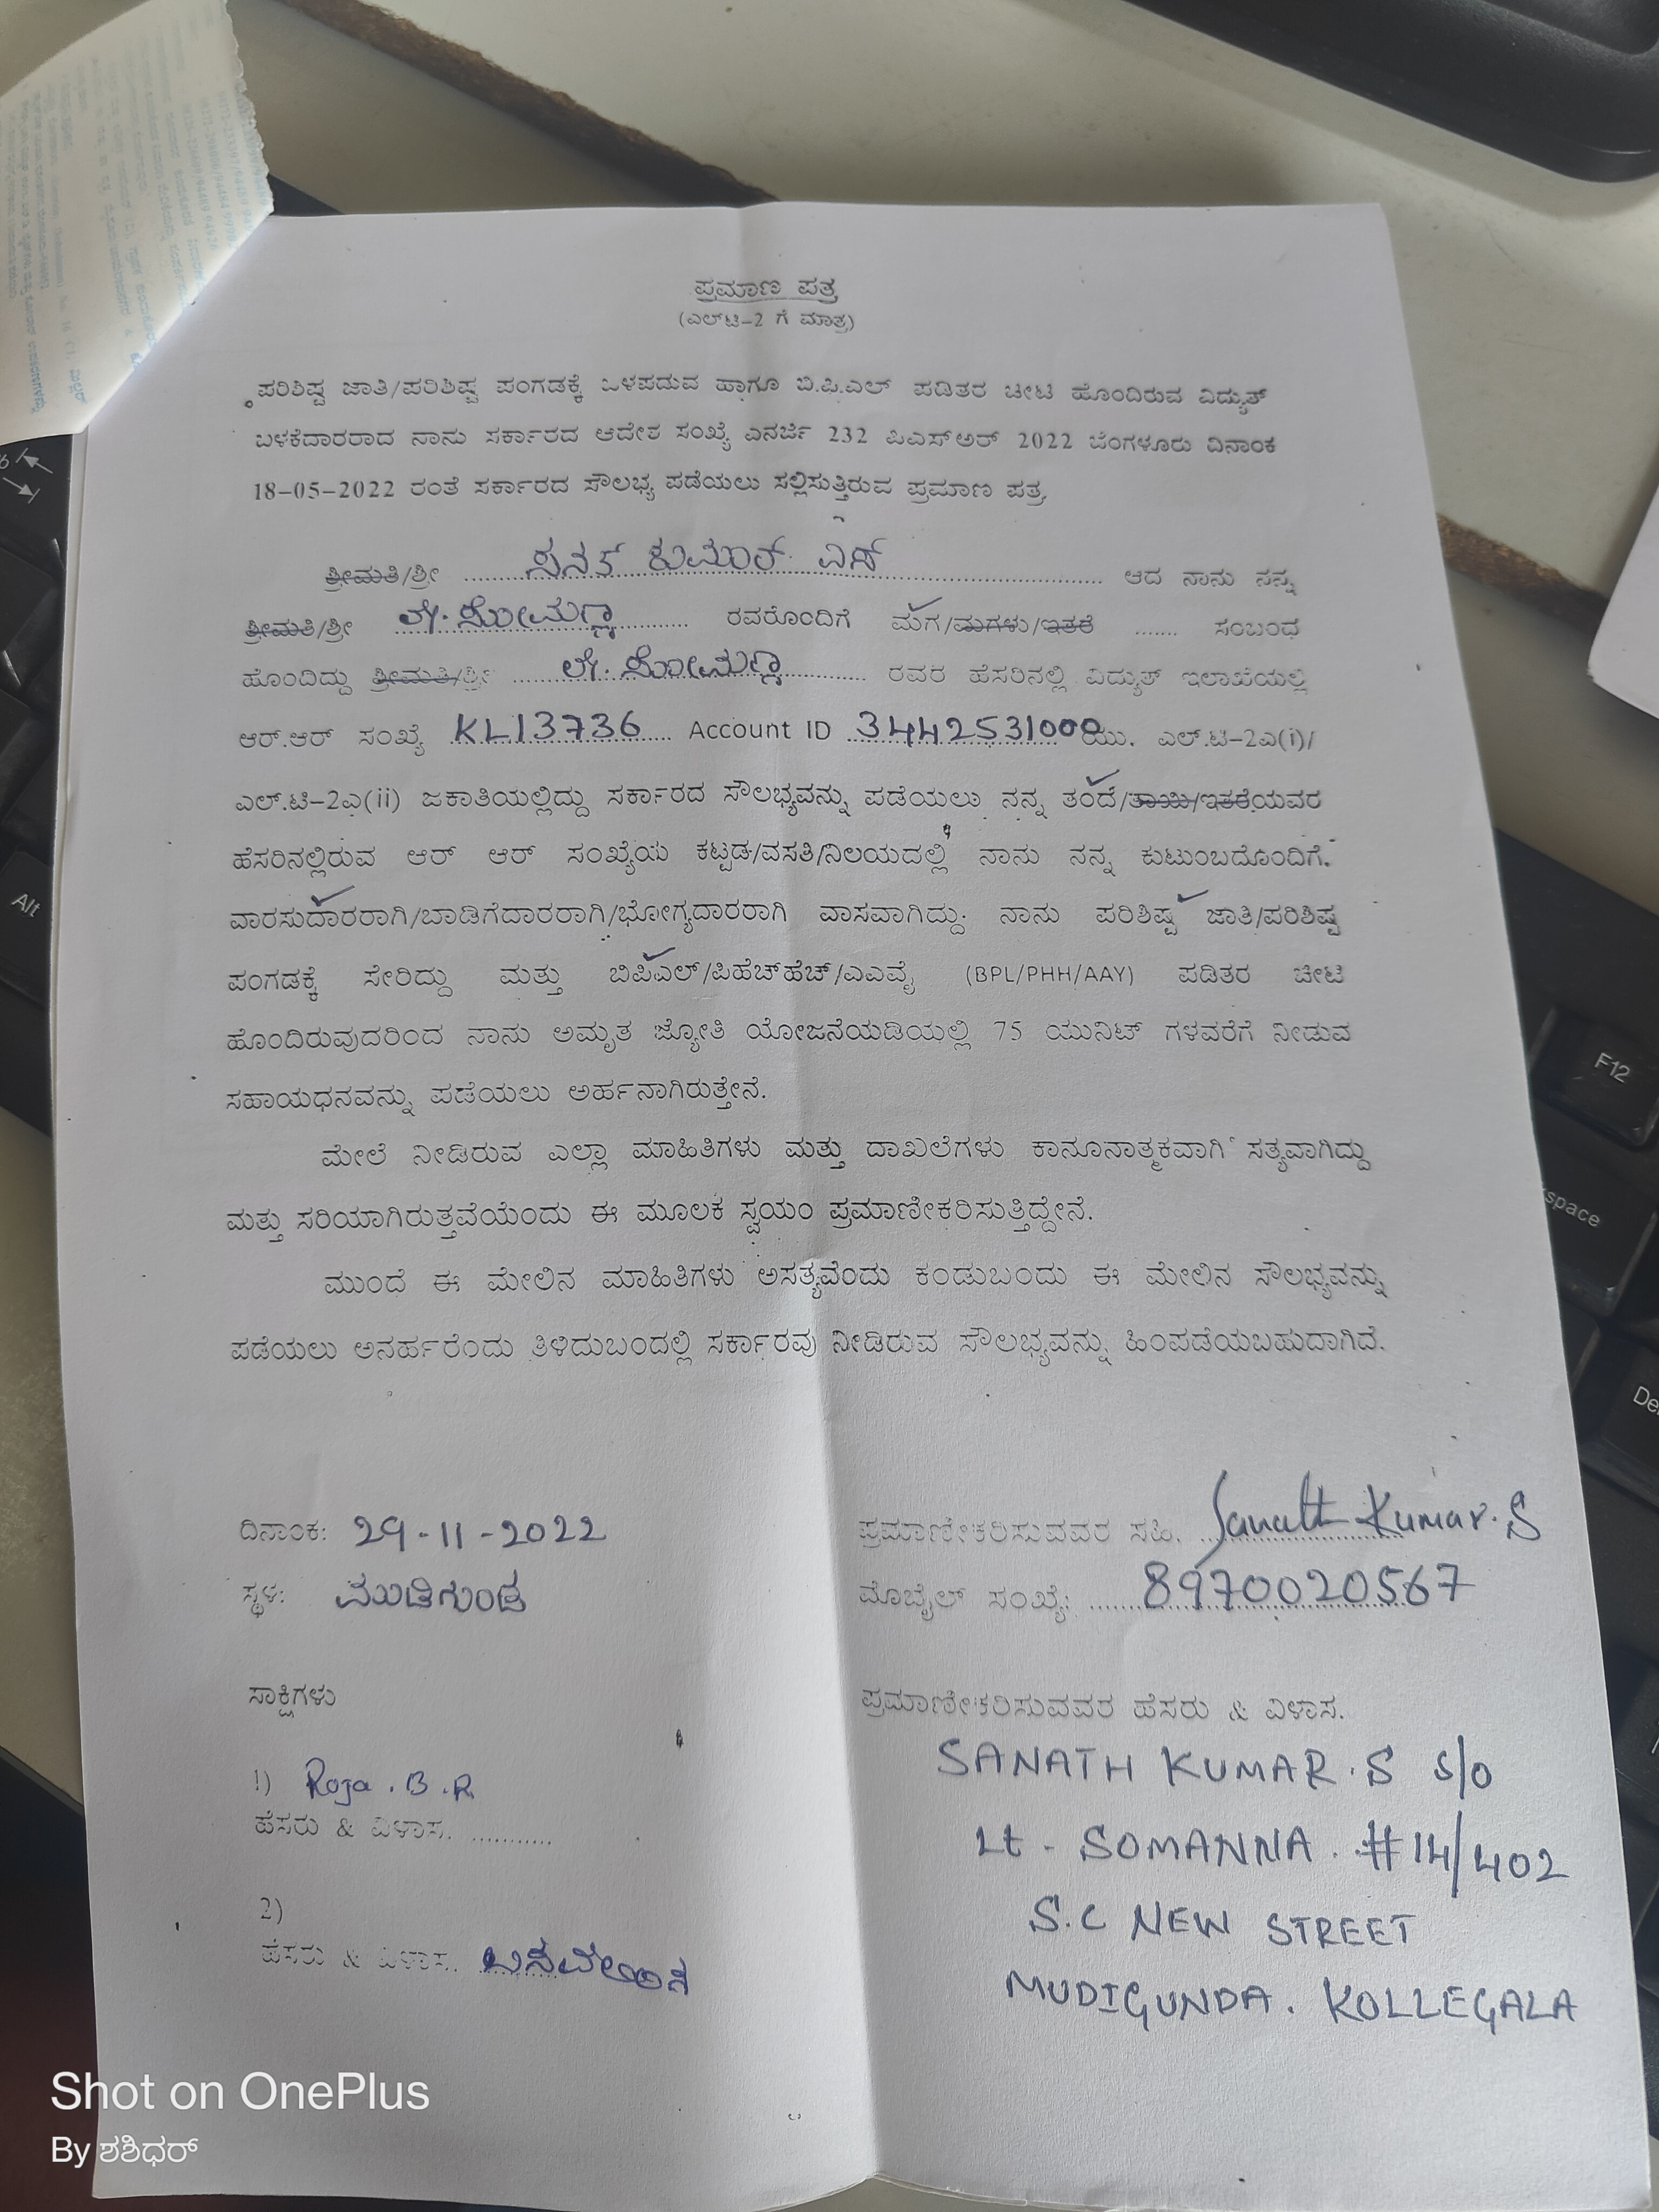 ಪ್ರಮಾಣ ಪತ್ರ
(ಎಲ್‌ಟಿ-2 ಗೆ ಮಾತ್ರ)
ಪರಿಶಿಷ್ಟ ಜಾತಿ/ಪರಿಶಿಷ್ಟ ಪಂಗಡಕ್ಕೆ ಒಳಪಡುವ ಹಾಗೂ ಬಿ.ಪಿ.ಎಲ್ ಪಡಿತರ ಚೀಟಿ ಹೊಂದಿರುವ ವಿದ್ಯುತ್
ಬಳಕೆದಾರರಾದ ನಾನು ಸರ್ಕಾರದ ಆದೇಶ ಸಂಖ್ಯೆ ಎನರ್ಜಿ 232 ಪಿಎಸ್‌ಆರ್ 2022 ಬೆಂಗಳೂರು ದಿನಾಂಕ
18-05-2022 ರಂತೆ ಸರ್ಕಾರದ ಸೌಲಭ್ಯ ಪಡೆಯಲು ಸಲ್ಲಿಸುತ್ತಿರುವ ಪ್ರಮಾಣ ಪತ್ರ
ಶ್ರೀಮತಿ/ಶ್ರೀ ಸನತ್ ಕುಮಾರ್ ಎಸ್ ಆದ ನಾನು ನನ್ನ
ಶ್ರೀಮತಿ/ಶ್ರೀ ಲೇ. ಸೋಮಣ್ಣ ರವರೊಂದಿಗೆ ಮಗ/ಮಗಳು/ಇತರೆ ....... ಸಂಬಂಧ
ಹೊಂದಿದ್ದು ಶ್ರೀಮತಿ/ಶ್ರೀ ಲೇ. ಸೋಮಣ್ಣ ರವರ ಹೆಸರಿನಲ್ಲಿ ವಿದ್ಯುತ್ ಇಲಾಖೆಯಲ್ಲಿ
ಆರ್.ಆರ್ ಸಂಖ್ಯೆ KL13736 Account ID 3442531000 ಯು. ಎಲ್.ಟಿ-2ಎ(i)/
ಎಲ್.ಟಿ-2ಎ(ii) ಜಕಾತಿಯಲ್ಲಿದ್ದು ಸರ್ಕಾರದ ಸೌಲಭ್ಯವನ್ನು ಪಡೆಯಲು ನನ್ನ ತಂದೆ/ತಾಯಿ/ಇತರೆಯವರ
ಹೆಸರಿನಲ್ಲಿರುವ ಆರ್ ಆರ್ ಸಂಖ್ಯೆಯ ಕಟ್ಟಡ/ವಸತಿ/ನಿಲಯದಲ್ಲಿ ನಾನು ನನ್ನ ಕುಟುಂಬದೊಂದಿಗೆ.
ವಾರಸುದಾರರಾಗಿ/ಬಾಡಿಗೆದಾರರಾಗಿ/ಭೋಗ್ಯದಾರರಾಗಿ ವಾಸವಾಗಿದ್ದು ನಾನು ಪರಿಶಿಷ್ಟ ಜಾತಿ/ಪರಿಶಿಷ್ಟ
ಪಂಗಡಕ್ಕೆ ಸೇರಿದ್ದು ಮತ್ತು ಬಿಪಿಎಲ್/ಪಿಹೆಚ್‌ಹೆಚ್/ಎಎವೈ (BPL/PHH/AAY) ಪಡಿತರ ಚೀಟಿ
ಹೊಂದಿರುವುದರಿಂದ ನಾನು ಅಮೃತ ಜ್ಯೋತಿ ಯೋಜನೆಯಡಿಯಲ್ಲಿ 75 ಯುನಿಟ್ ಗಳವರೆಗೆ ನೀಡುವ
ಸಹಾಯಧನವನ್ನು ಪಡೆಯಲು ಅರ್ಹನಾಗಿರುತ್ತೇನೆ.
ಮೇಲೆ ನೀಡಿರುವ ಎಲ್ಲಾ ಮಾಹಿತಿಗಳು ಮತ್ತು ದಾಖಲೆಗಳು ಕಾನೂನಾತ್ಮಕವಾಗಿ ಸತ್ಯವಾಗಿದ್ದು
ಮತ್ತು ಸರಿಯಾಗಿರುತ್ತವೆಯೆಂದು ಈ ಮೂಲಕ ಸ್ವಯಂ ಪ್ರಮಾಣೀಕರಿಸುತ್ತಿದ್ದೇನೆ.
ಮುಂದೆ ಈ ಮೇಲಿನ ಮಾಹಿತಿಗಳು ಅಸತ್ಯವೆಂದು ಕಂಡುಬಂದು ಈ ಮೇಲಿನ ಸೌಲಭ್ಯವನ್ನು
ಪಡೆಯಲು ಅನರ್ಹರೆಂದು ತಿಳಿದುಬಂದಲ್ಲಿ ಸರ್ಕಾರವು ನೀಡಿರುವ ಸೌಲಭ್ಯವನ್ನು ಹಿಂಪಡೆಯಬಹುದಾಗಿದೆ.
ದಿನಾಂಕ: 29-11-2022
ಸ್ಥಳ: ಮುಡಿಗುಂಡ
ಪ್ರಮಾಣೀಕರಿಸುವವರ ಸಹಿ. Sanath Kumar.S
ಮೊಬೈಲ್ ಸಂಖ್ಯೆ: 8970020567
ಸಾಕ್ಷಿಗಳು
1) Roja.B.R
ಹೆಸರು & ವಿಳಾಸ. ...........
2)
ಹೆಸರು & ವಿಳಾಸ.
ಪ್ರಮಾಣೀಕರಿಸುವವರ ಹೆಸರು & ವಿಳಾಸ.
SANATH KUMAR.S S/O
Lt - SOMANNA. #14/402
S.C NEW STREET
MUDIGUNDA. KOLLEGALA
Shot on OnePlus
By ಶಶಿಧರ್